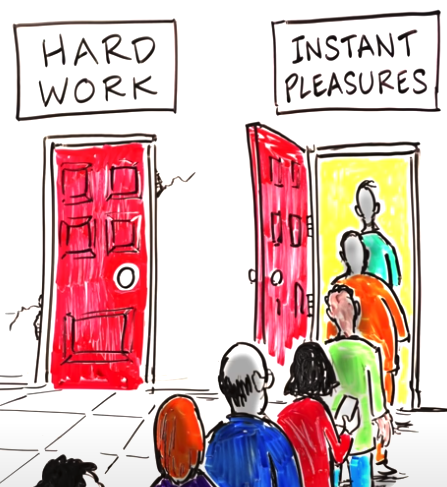 HARD
WORK
INSTANT
PLEASURES